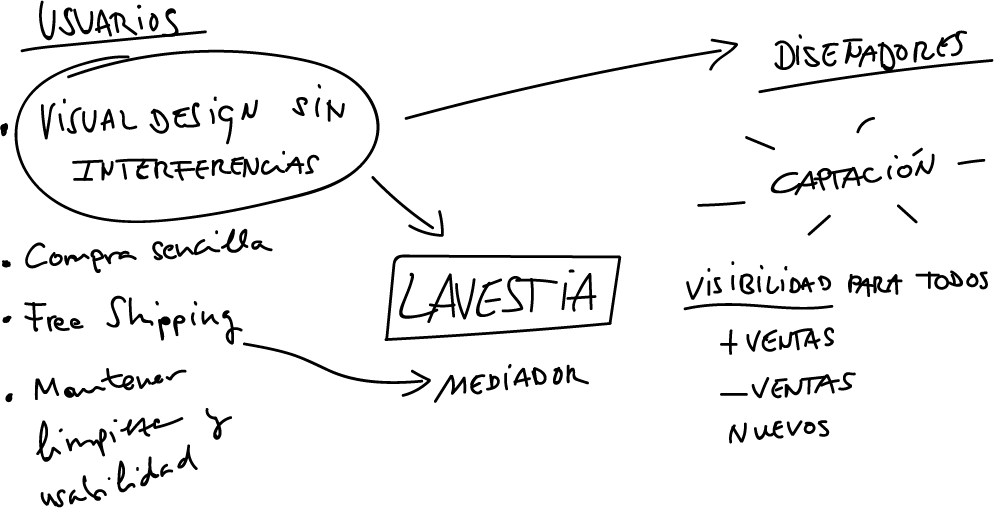 USUARIOS
• VISUAL DESIGN SIN
INTERFERENCIAS
• Compra sencilla
• Free Shipping
• Mantener
limpieza y
usabilidad
LAVESTIA
MEDIADOR
DISEÑADORES
CAPTACIÓN
VISIBILIDAD PARA TODOS
+ VENTAS
– VENTAS
NUEVOS